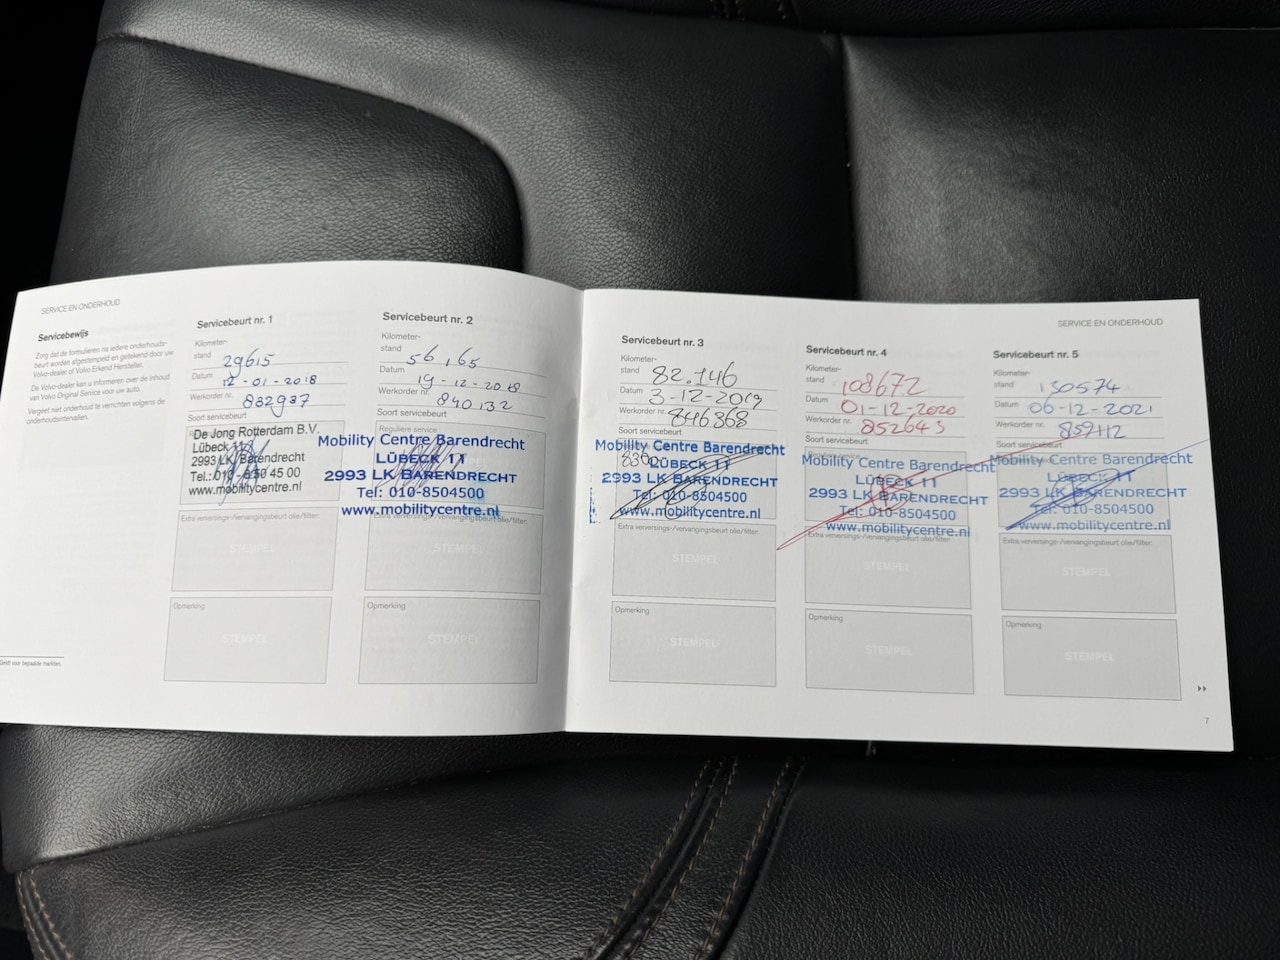 SERVICE EN ONDERHOUD
Servicebewijs
Zorg dat de formulieren na iedere onderhouds-
beurt worden afgestempeld en getekend door uw
Volvo-dealer of Volvo Erkend Hersteller.
De Volvo-dealer kan u informeren over de inhoud
van Volvo Original Service voor uw auto.
Vergeet niet onderhoud te verrichten volgens de
onderhoudsintervallen.
Geldt voor bepaalde markten.
Servicebeurt nr. 1
Kilometer-
stand 29615
Datum 12-01-2018
Werkorder nr. 832987
Soort servicebeurt
De Jong Rotterdam B.V.
Lübeck 11
2993 LK Barendrecht
Tel.: 010-850 45 00
www.mobilitycentre.nl
Extra verversings-/vervangingsbeurt olie/filter:
STEMPEL
Opmerking
STEMPEL
Servicebeurt nr. 2
Kilometer-
stand 56,165
Datum 19-12-2018
Werkorder nr. 840132
Soort servicebeurt
Reguliere service
Mobility Centre Barendrecht
LÜBECK 11
2993 LK BARENDRECHT
Tel: 010-8504500
www.mobilitycentre.nl
Extra verversings-/vervangingsbeurt olie/filter:
STEMPEL
Opmerking
STEMPEL
SERVICE EN ONDERHOUD
Servicebeurt nr. 3
Kilometer-
stand 82.146
Datum 3-12-2019
Werkorder nr. 846368
Soort servicebeurt
Mobility Centre Barendrecht
LÜBECK 11
2993 LK BARENDRECHT
Tel: 010-8504500
www.mobilitycentre.nl
Extra verversings-/vervangingsbeurt olie/filter:
STEMPEL
Opmerking
STEMPEL
Servicebeurt nr. 4
Kilometer-
stand 108672
Datum 01-12-2020
Werkorder nr. 852643
Soort servicebeurt
Mobility Centre Barendrecht
LÜBECK 11
2993 LK BARENDRECHT
Tel: 010-8504500
www.mobilitycentre.nl
Extra verversings-/vervangingsbeurt olie/filter:
STEMPEL
Opmerking
STEMPEL
Servicebeurt nr. 5
Kilometer-
stand 130574
Datum 06-12-2021
Werkorder nr. 859112
Soort servicebeurt
Mobility Centre Barendrecht
LÜBECK 11
2993 LK BARENDRECHT
Tel: 010-8504500
www.mobilitycentre.nl
Extra verversings-/vervangingsbeurt olie/filter:
STEMPEL
Opmerking
STEMPEL
7